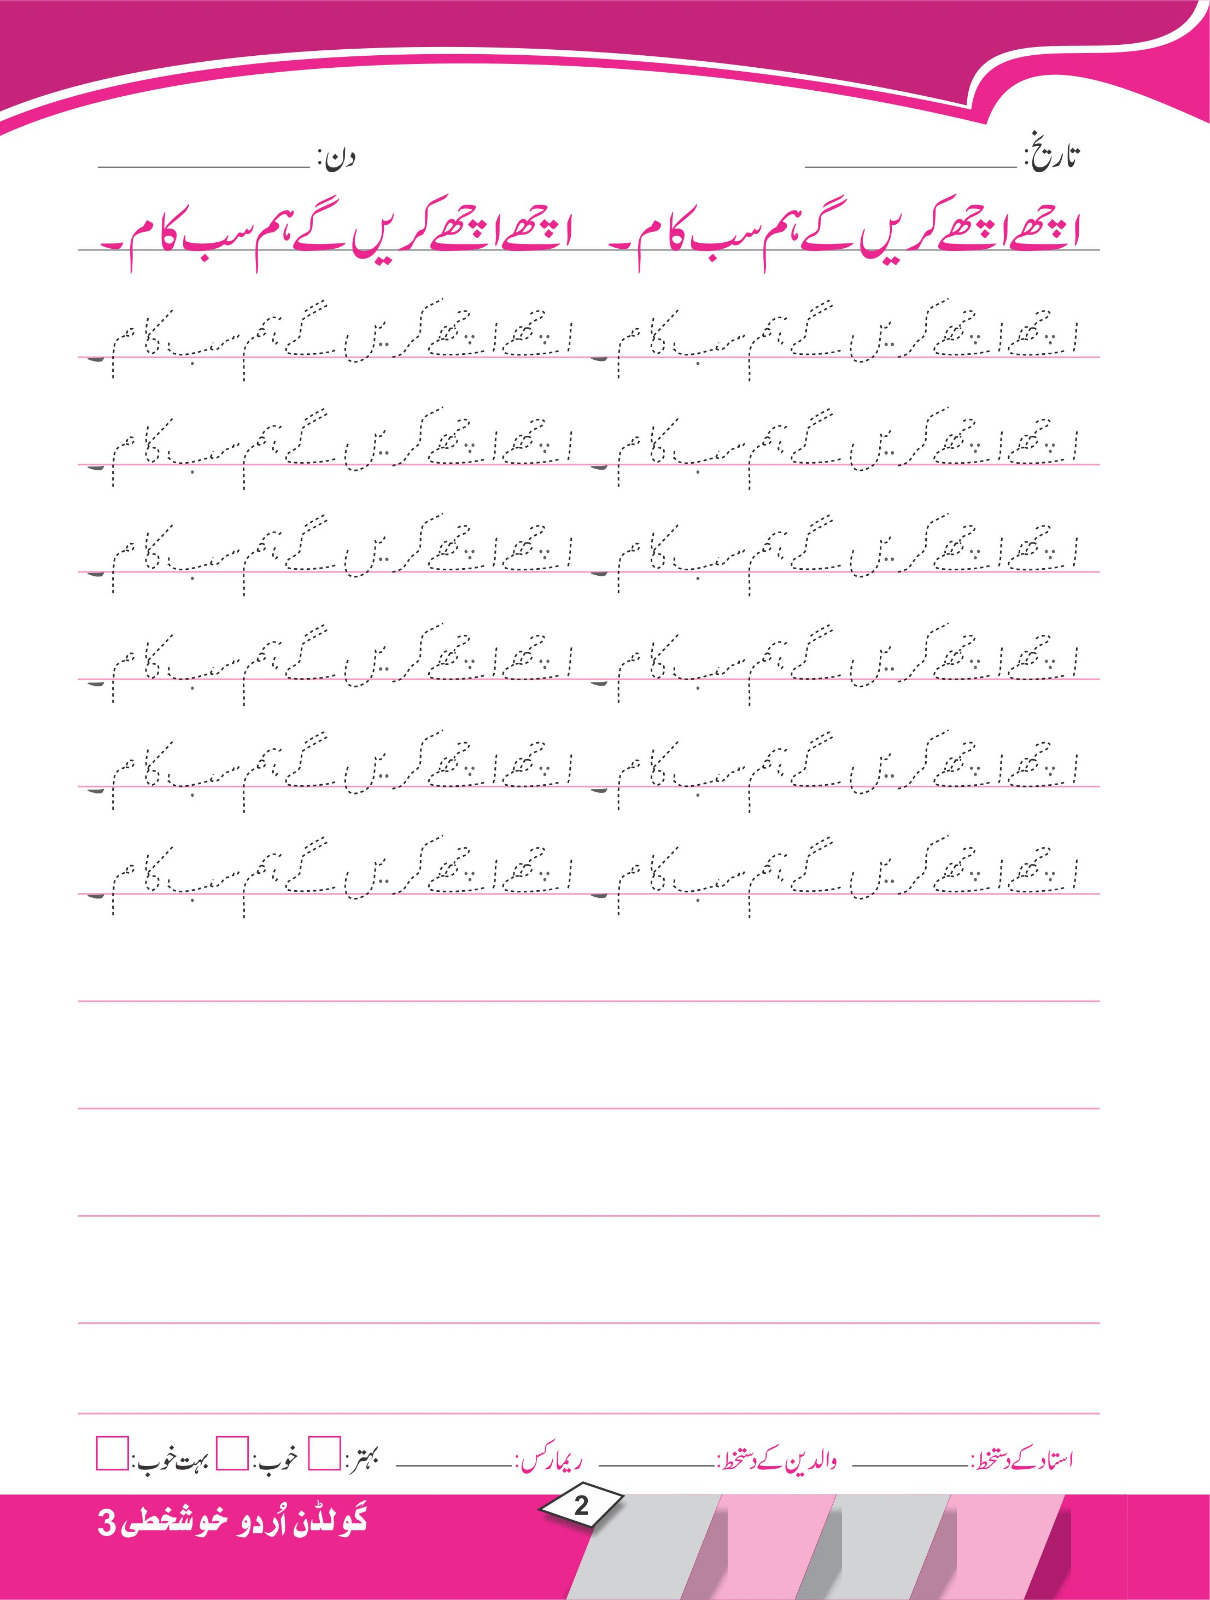 تاریخ: ____________ دن: ____________
اچھے اچھے کریں گے ہم سب کام۔ اچھے اچھے کریں گے ہم سب کام۔
اچھے اچھے کریں گے ہم سب کام۔ اچھے اچھے کریں گے ہم سب کام۔
اچھے اچھے کریں گے ہم سب کام۔ اچھے اچھے کریں گے ہم سب کام۔
اچھے اچھے کریں گے ہم سب کام۔ اچھے اچھے کریں گے ہم سب کام۔
اچھے اچھے کریں گے ہم سب کام۔ اچھے اچھے کریں گے ہم سب کام۔
اچھے اچھے کریں گے ہم سب کام۔ اچھے اچھے کریں گے ہم سب کام۔
اچھے اچھے کریں گے ہم سب کام۔ اچھے اچھے کریں گے ہم سب کام۔
استاد کے دستخط: ________ والدین کے دستخط: ________ ریمارکس: ________ بہتر: خوب: بہت خوب:
2
گولڈن اُردو خوشخطی 3